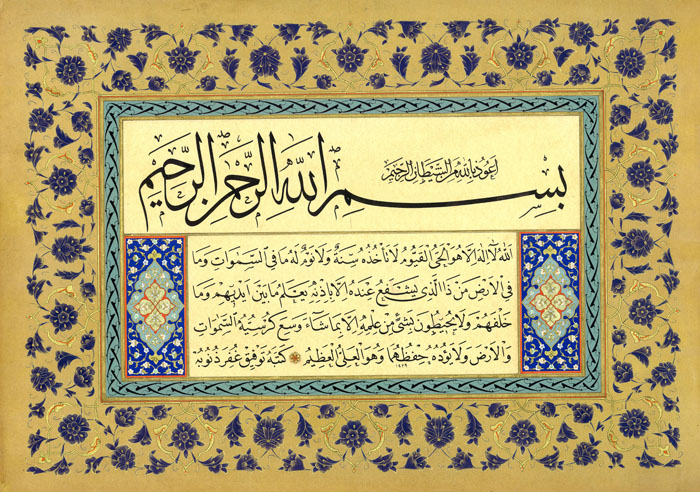 اعوذ بالله من الشيطان الرجيم
بسم الله الرحمن الرحيم
الله لا اله الا هو الحى القيوم لا تأخذه سنة ولا نوم له ما فى السموات وما
فى الارض من ذا الذى يشفع عنده الا باذنه يعلم ما بين ايديهم وما
خلفهم ولا يحيطون بشئ من علمه الا بما شاء وسع كرسيه السموات
والارض ولا يؤده حفظهما وهو العلى العظيم كتبه توفيق غفر ذنوبه
١٤٢٩